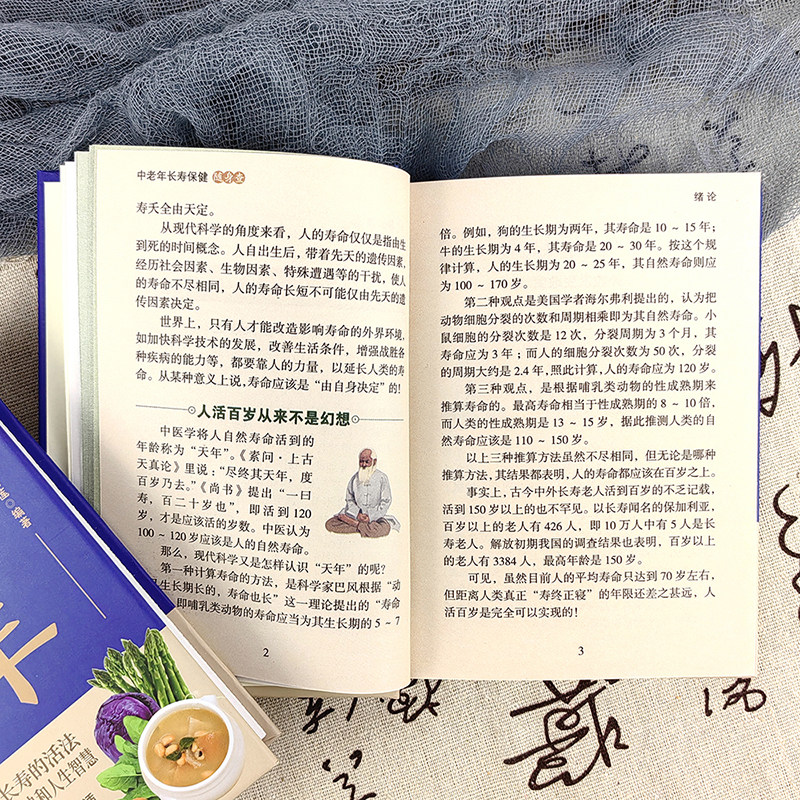 中老年长寿保健 随身查
寿夭全由天定。
从现代科学的角度来看，人的寿命仅仅是指由生
到死的时间概念。人自出生后，带着先天的遗传因素，
经历社会因素、生物因素、特殊遭遇等的干扰，使人
的寿命不尽相同，人的寿命长短不可能仅由先天的遗
传因素决定。
世界上，只有人才能改造影响寿命的外界环境，
如加快科学技术的发展，改善生活条件，增强战胜各
种疾病的能力等，都要靠人的力量，以延长人类的寿
命。从某种意义上说，寿命应该是“由自身决定”的！
人活百岁从来不是幻想
中医学将人自然寿命活到的
年龄称为“天年”。《素问·上古
天真论》里说：“尽终其天年，度
百岁乃去。”《尚书》提出“一曰
寿，百二十岁也”，即活到120
岁，才是应该活的岁数。中医认为
100～120岁应该是人的自然寿命。
那么，现代科学又是怎样认识“天年”的呢？
第一种计算寿命的方法，是科学家巴风根据“动
生长期长的，寿命也长”这一理论提出的“寿命
即哺乳类动物的寿命应当为其生长期的5～7
2
绪论
倍。例如，狗的生长期为两年，其寿命是10～15年；
牛的生长期为4年，其寿命为20～30年。按这个规
律计算，人的生长期为20～25年，其自然寿命则应
为100～170岁。
第二种观点是美国学者海尔弗利提出的，认为把
动物细胞分裂的次数和周期相乘即为其自然寿命。小
鼠细胞的分裂次数是12次，分裂周期为3个月，其
寿命应为3年；而人的细胞分裂次数为50次，分裂
的周期大约是2.4年，照此计算，人的寿命应为120岁。
第三种观点，是根据哺乳类动物的性成熟期来
推算寿命的。最高寿命相当于性成熟期的8～10倍，
而人类的性成熟期是13～15年，据此推测人类的自
然寿命应该是110～150岁。
以上三种推算方法虽然不尽相同，但无论是哪种
推算方法，其结果都表明，人的寿命都应该在百岁之上。
事实上，古今中外长寿老人活到百岁的不乏记载，
活到150岁以上的也不罕见。以长寿闻名的保加利亚，
百岁以上的老人有426人，即10万人中有5人是长
寿老人。解放初期我国的调查结果也表明，百岁以上
的老人有3384人，最高年龄是150岁。
可见，虽然目前人的平均寿命只达到70岁左右，
但距离人类真正“寿终正寝”的年限还差之甚远，人
活百岁是完全可以实现的！
3
编著
长寿的活法
和人生智慧